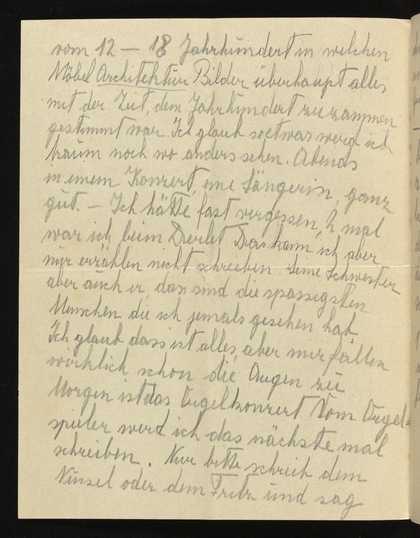 vom 12 – 18 Jahrhundert in welchen
Möbel Architektur Bilder überhaupt alles
mit der Zeit, dem Jahrhundert zusammen
gestimmt war. Ich glaub soetwas werd ich
kaum noch wo anders sehen. Abends
in einem Konzert, eine Sängerin, ganz
gut. – Ich hätte fast vergessen, 2 mal
war ich beim Das kann ich aber
nur erzählen nicht schreiben. Seine Schwester
aber auch er das sind die spassigsten
Menschen die ich jemals gesehen hab
Ich glaub dass ist alles, aber mir fallen
wirklich schon die Augen zu
Morgen ist das Orgelkonzert Vom Orgel-
spieler werd ich das nächste mal
schreiben. Nur bitte schreib dem
oder dem Fritz und sag